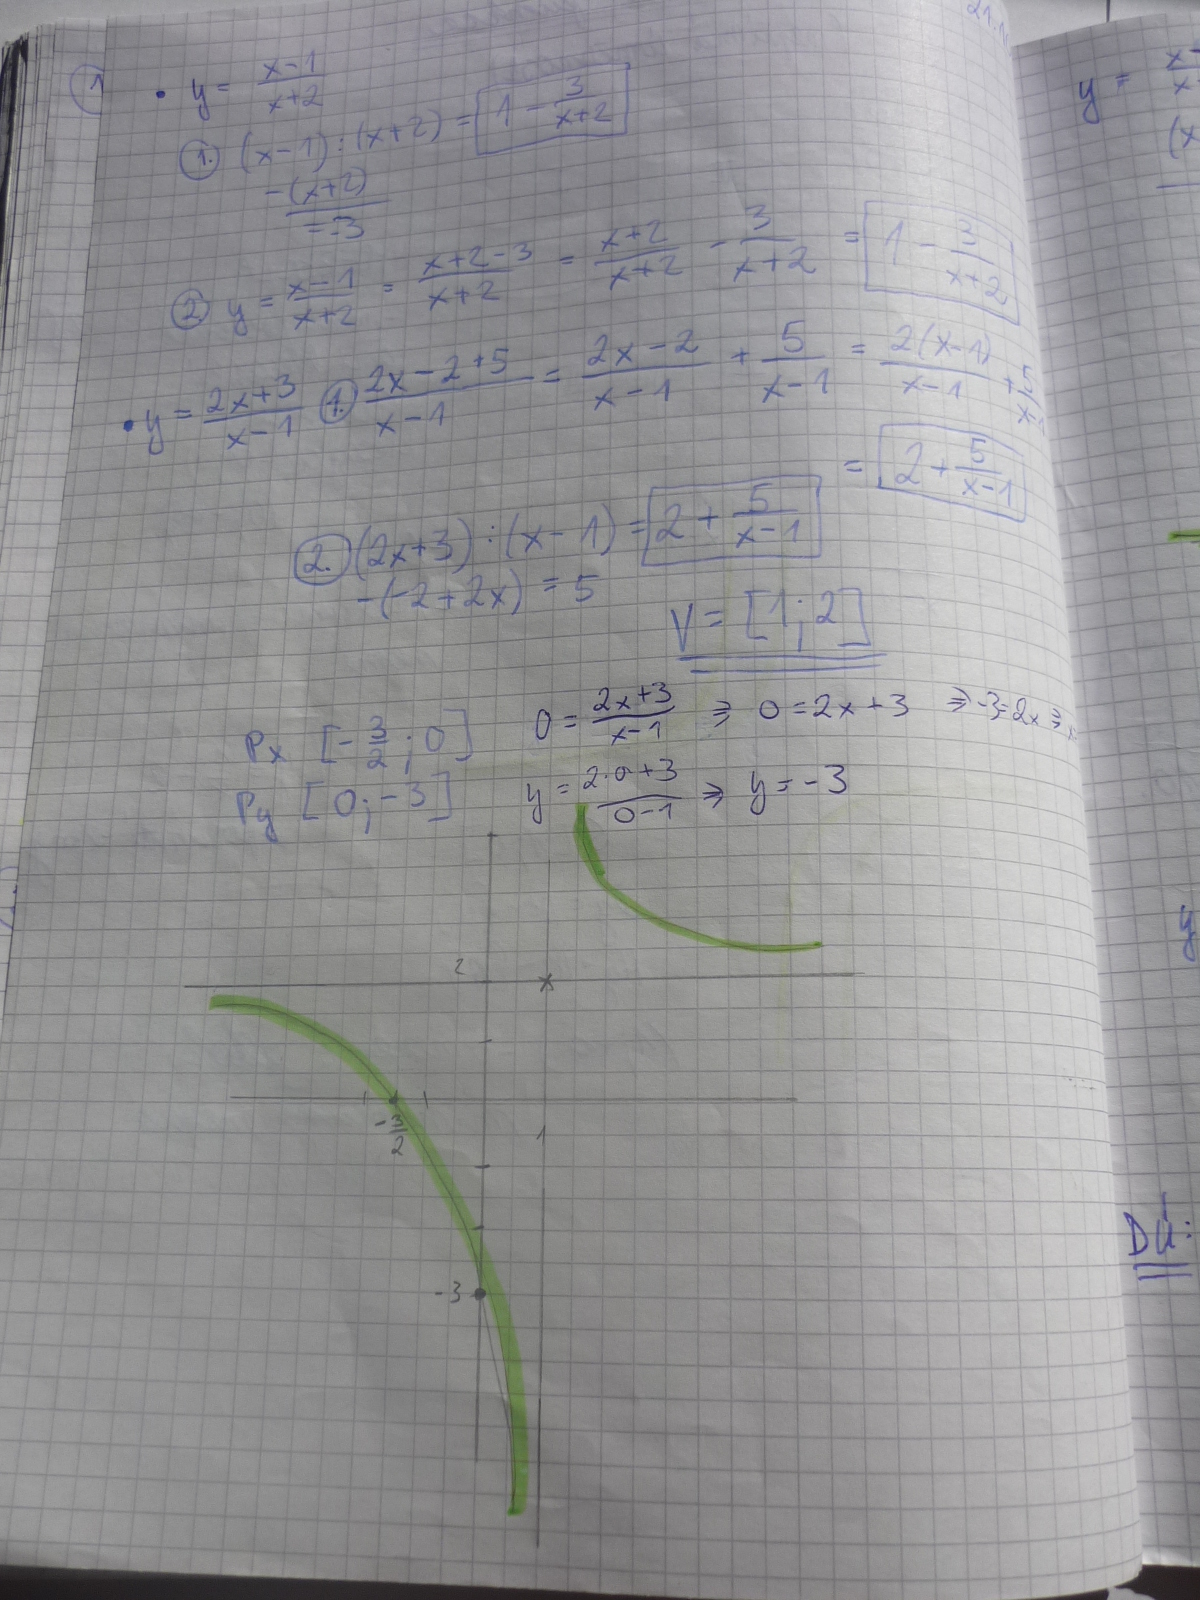 21.1
① • y = (x-1)/(x+2)
①. (x-1) : (x+2) = 1 - 3/(x+2)
-(x+2)
= -3
② y = (x-1)/(x+2) = (x+2-3)/(x+2) = (x+2)/(x+2) - 3/(x+2) = 1 - 3/(x+2)
• y = (2x+3)/(x-1) ①. (2x-2+5)/(x-1) = (2x-2)/(x-1) + 5/(x-1) = 2(x-1)/(x-1) + 5/(x-1)
= 2 + 5/(x-1)
②. (2x+3) : (x-1) = 2 + 5/(x-1)
-(-2+2x) = 5
V = [1; 2]
Px [-3/2; 0] 0 = (2x+3)/(x-1) ⇒ 0 = 2x+3 ⇒ -3=2x ⇒ x=
Py [0; -3] y = (2·0+3)/(0-1) ⇒ y = -3
2
x
-3/2
1
-3
y =
(x
y
DÚ: